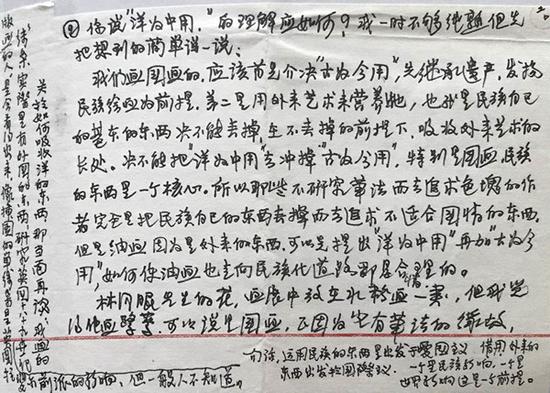 ② 你说“洋为中用”的理解应如何？我一时不够纯熟但先
把想到的简单说一说：
我们画国画的，应该首先解决“古为今用”，先继承遗产，发扬
民族绘画为前提。第二是用外来艺术来营养她，也就是民族自己
的基本的东西决不能丢掉在不丢掉的前提下，吸收外来艺术的
长处。决不能把“洋为中用”去冲掉“古为今用”，特别是国画，民族
的东西是一个核心。所以那些不研究笔法而去追求色块的作
者完全是把民族自己的东西丢掉而去追求不适合国情的东西，
但是油画因为是外来的东西，可以先提出“洋为中用”再加“古为今
用”，如何使油画也走向民族化道路那是合理的。
林风眠先生的花，画展中放在水粉画一类，但我觉
得他画 可以说是国画，正因为它有笔法的
关于如何吸收洋的东西那当面再谈，我画的
实际里有外国的东西研究英国
版画的人是会看得出来，
前派的影响，但一般人不知道。
一句话，运用民族的东西是出发于爱国主义 借用外来的
东西出发于国际主义。一个是民族影响，一个是
世界影响这是一个前提。